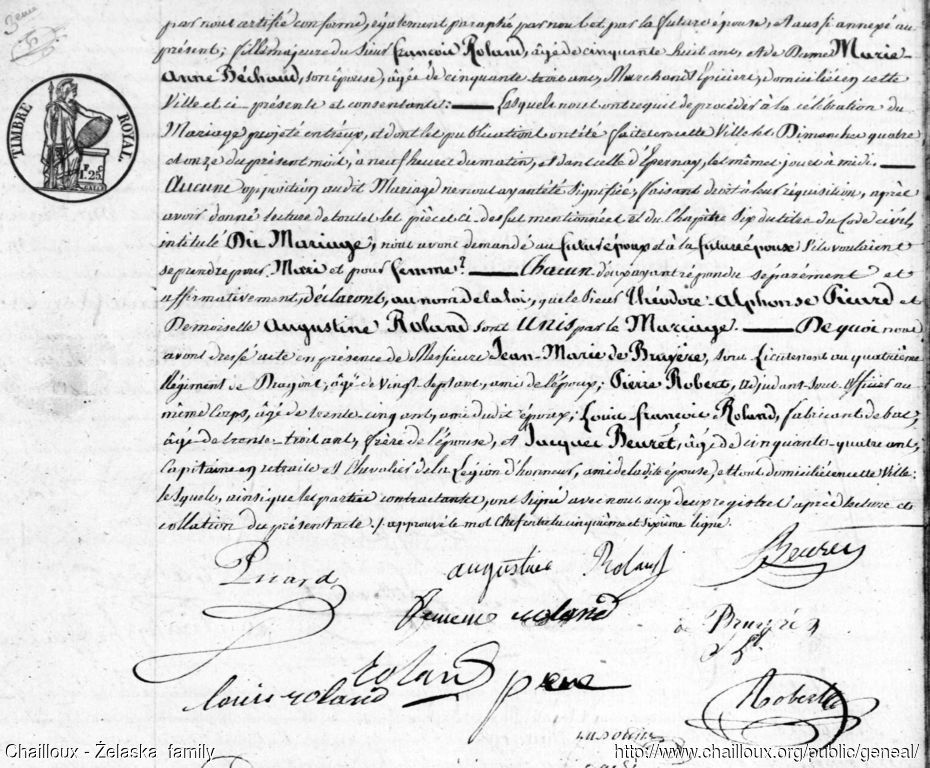 3eme
par nous certifié conforme, également paraphé par nous et par la future épouse, et aussi annexé au
présent; fille majeure du Sieur françois Roland, âgé de cinquante huit ans, et de Dame Marie-
Anne Béchaud, son épouse, âgée de cinquante trois ans, Marchands Epiciers, domiciliés en cette
Ville et ci-présents et consentants: — Lesquels nous ont requis de procéder à la célébration du
Mariage projeté entr'eux, et dont les publications ont été faites en cette Ville les Dimanches quatre
et onze du présent mois, à neuf heures du matin, et dans celle d'Epernay, les mêmes jours à midi. —
Aucune opposition audit Mariage ne nous ayant été signifiée, faisant droit à leur réquisition, après
avoir donné lecture de toutes les pièces ci-dessus mentionnées et du Chapitre Six du titre du Code civil,
intitulé Du Mariage, nous avons demandé au futur époux et à la future épouse s'ils voulaient
se prendre pour Mari et pour femme? — Chacun d'eux ayant répondu séparément et
affirmativement, déclarons, au nom de la loi, que le Sieur Théodore-Alphonse Picard et
Demoiselle Augustine Roland sont Unis par le Mariage. — De quoi nous
avons dressé acte en présence de Messieurs Jean-Marie de Bruyère, sous Lieutenant au quatrième
Régiment de Dragons, âgé de vingt-sept ans, ami de l'époux; Pierre Robert, adjudant-sous-officier au
même corps, âgé de trente-cinq ans, ami dudit époux; Louis-françois Roland, fabricant de bas,
âgé de trente-trois ans, frère de l'épouse, et Jacques Beuret, âgé de cinquante-quatre ans,
Capitaine en retraite et Chevalier de la Légion d'honneur, ami de ladite épouse, et tous domiciliés en cette Ville;
lesquels, ainsi que les parties contractantes, ont signé avec nous aux deux registres après lecture et
collation du présent acte. / approuvé le mot Chef entre les cinquième et sixième ligne
TIMBRE ROYAL.
1.25
Picard
augustine Roland
Beuret
femme roland
de Bruyère
roland père
louis roland
Robert
Chailloux - Želaska family
http://www.chailloux.org/public/geneal/